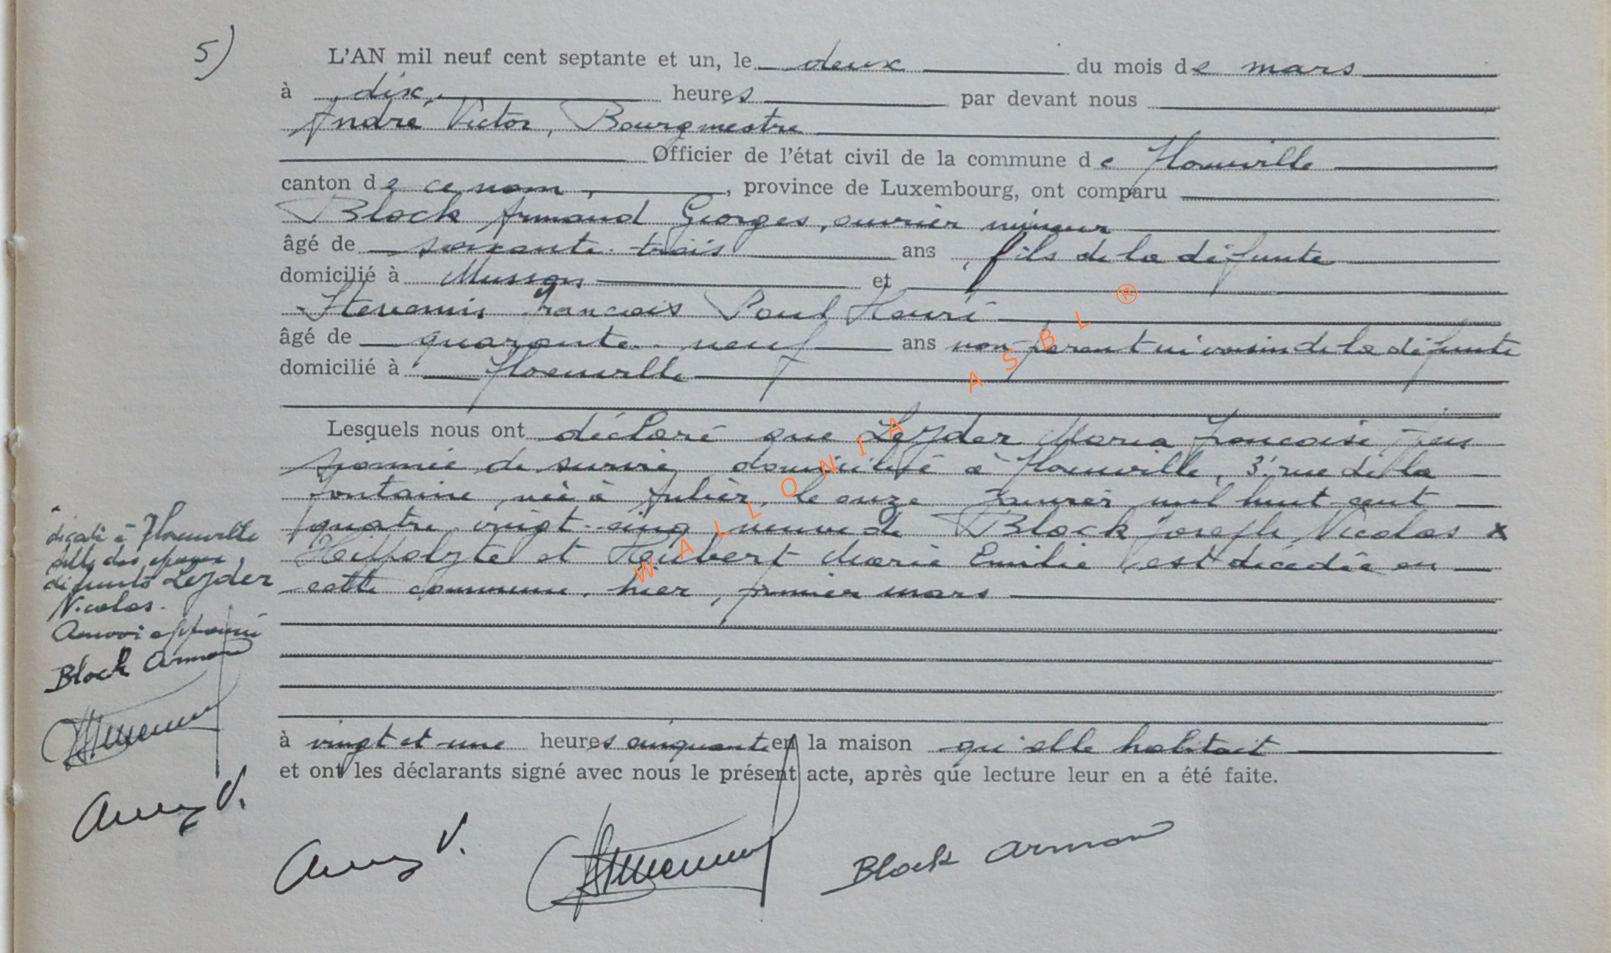 5)
L'AN mil neuf cent septante et un, le deux du mois de mars
à dix, heures par devant nous
André Victor, Bourgmestre
Officier de l'état civil de la commune de Florenville
canton de ce nom, , province de Luxembourg, ont comparu
Block Armand Georges, ouvrier mineur
âgé de soixante trois ans , fils de la défunte
domicilié à Musson et
Stevenin François Paul Henri
âgé de quarante neuf ans non parent ni voisin de la défunte
domicilié à Florenville
Lesquels nous ont déclaré que Lejder Maria Françoise
pension de survie, domiciliée à Florenville, 3, rue de la
fontaine, née à, le onze janvier mil huit cent
quatre vingt cinq veuve de Block Joseph Nicolas x
Hippolyte et Houbert Marie Emilie est décédée en
cette commune, hier, premier mars
à Florenville
fille des époux
défunts Lejder
Nicolas.
Renvoi approuvé
Block Armand
à vingt et une heures cinquante en la maison qu'elle habitait
et ont les déclarants signé avec nous le présent acte, après que lecture leur en a été faite.
V.
V.
Block Armand
WALLONIA ASBL ®